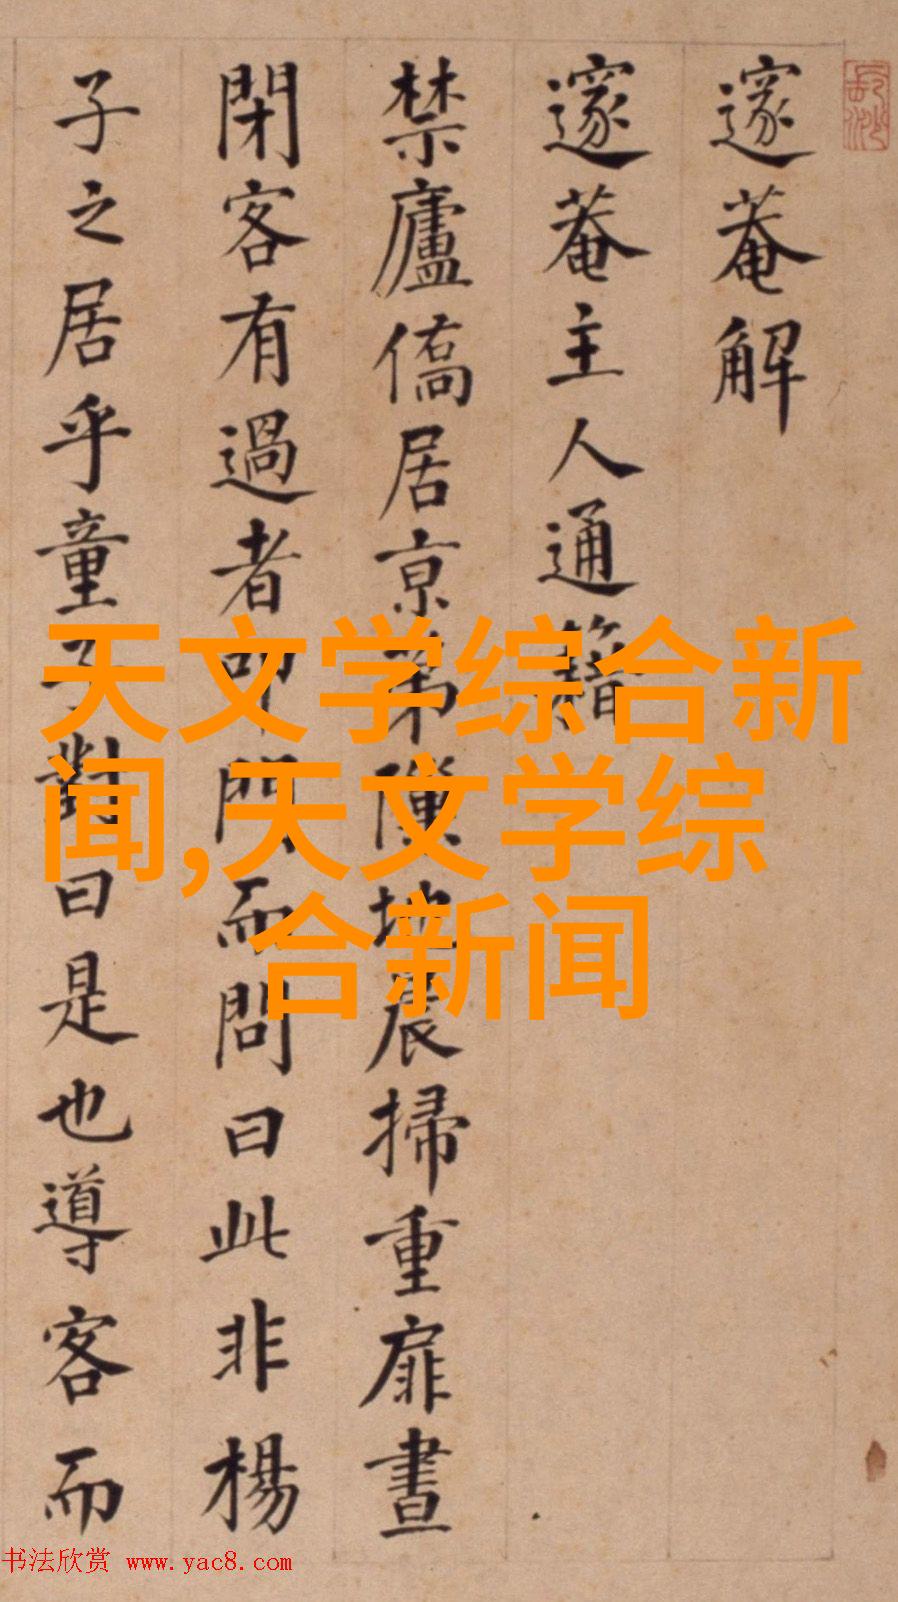 邃菴解
邃菴主人通籍
禁廬僑居京第隙地晨掃重扉晝
閉客有過者叩門而問曰此非楊
子之居乎童子對曰是也導客而
天文学综合新
闻,天文学综
合新闻
书法欣赏 www.yac8.com